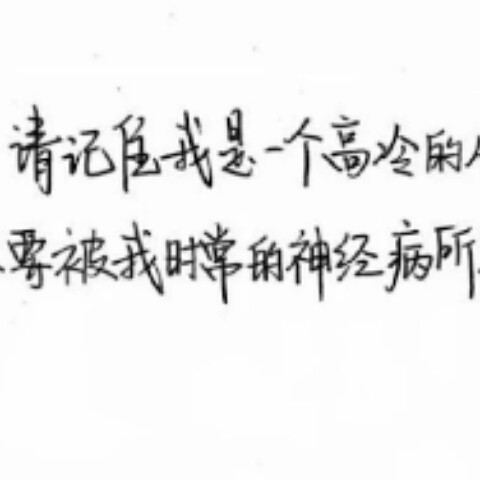 请记住我是一个高冷的
要被我时常的神经病所